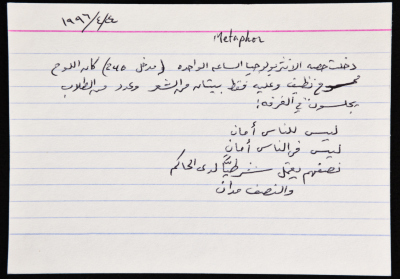 ١٩٩٦/٤/٢٤
Metaphor
دخلت حصه الانتربولوجيا الساعه الواحده (مدخل 240) كان اللوح
نظيف وعليه فقط بيتان من الشعر وعدد من الطلاب
يجلسون في الغرفه؛
ليس للناس أمان
ليس في الناس أمان
نصفهم يعمل شرطيًّا لدى الحاكم
والنصف مدان